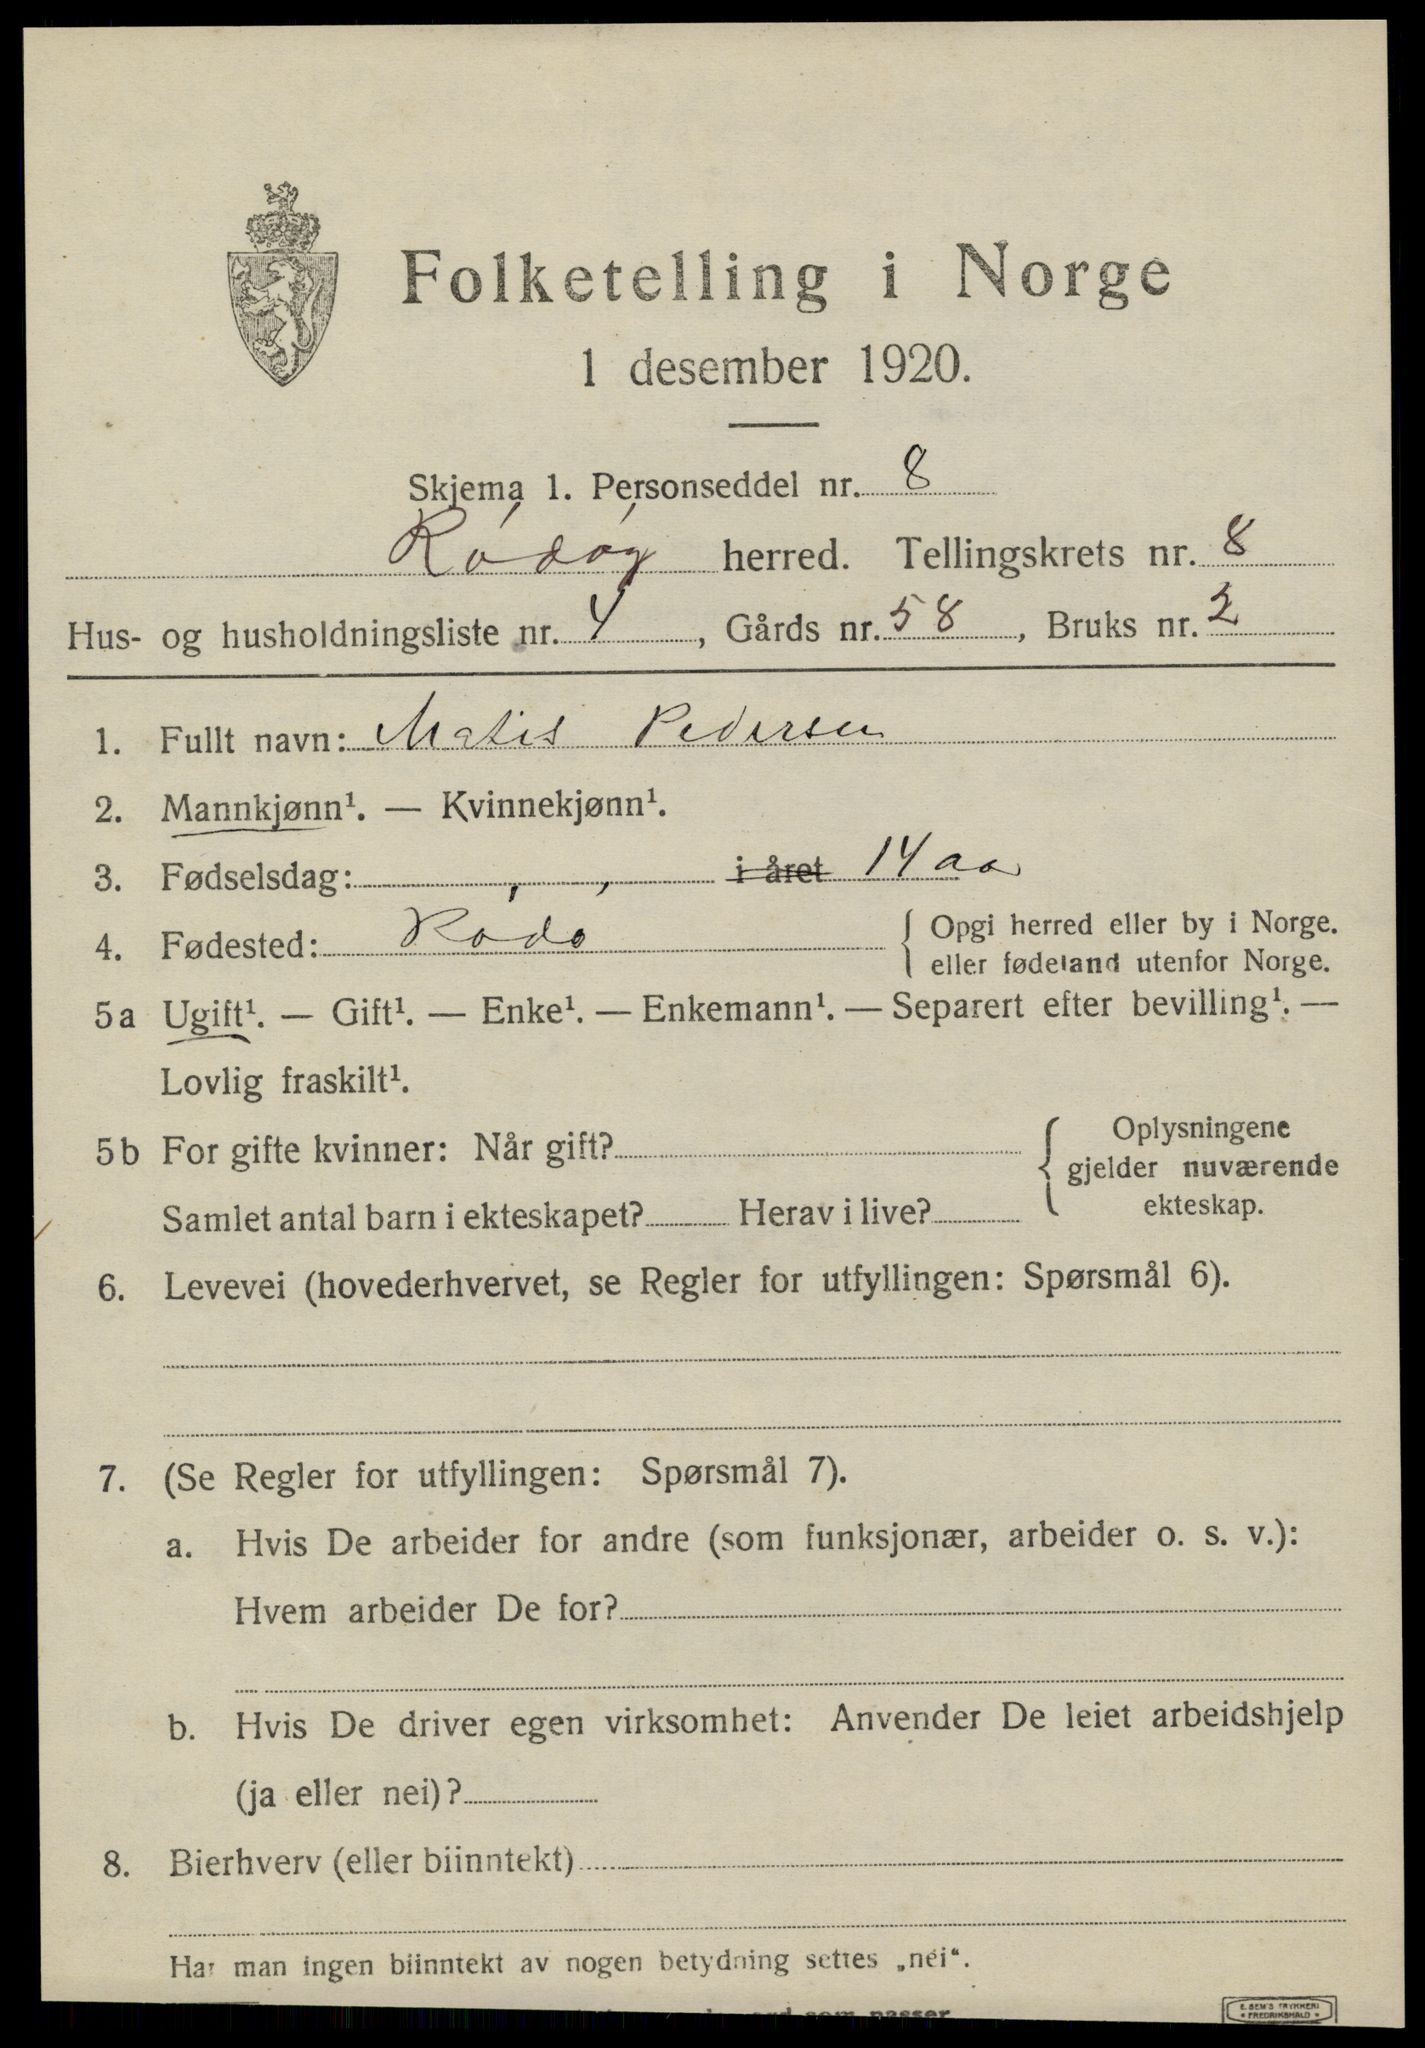 Folketelling i Norge
1 desember 1920.
Skjema 1. Personseddel nr. 8
Rødøy herred. Tellingskrets nr. 8
Hus- og husholdningsliste nr. 4, Gårds nr. 58, Bruks nr. 2
1. Fullt navn: Matis Pedersen
2. Mannkjønn¹. — Kvinnekjønn¹.
3. Fødselsdag: i året 14 aa
4. Fødested: Rødø { Opgi herred eller by i Norge.
eller fødeland utenfor Norge.
5a Ugift¹. — Gift¹. — Enke¹. — Enkemann¹. — Separert efter bevilling¹. —
Lovlig fraskilt¹.
5b For gifte kvinner: Når gift? { Oplysningene
gjelder nuværende
ekteskap.
Samlet antal barn i ekteskapet? Herav i live?
6. Levevei (hovederhvervet, se Regler for utfyllingen: Spørsmål 6).
7. (Se Regler for utfyllingen: Spørsmål 7).
a. Hvis De arbeider for andre (som funksjonær, arbeider o. s. v.):
Hvem arbeider De for?
b. Hvis De driver egen virksomhet: Anvender De leiet arbeidshjelp
(ja eller nei)?
8. Bierhverv (eller biinntekt)
Har man ingen biinntekt av nogen betydning settes „nei“.
som passer
E. SEM'S TRYKKERI
FREDRIKSHALD